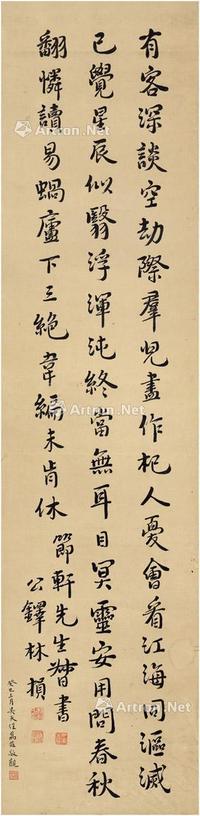 有客深談空劫際羣兒盡作杞人憂會看江海同漚滅
已覺星辰似翳浮渾沌終當無耳目冥靈安用問春秋
翻憐讀易蝸廬下三絶韋編未肯休
節軒先生督書
公鐸林損
Artron.Net